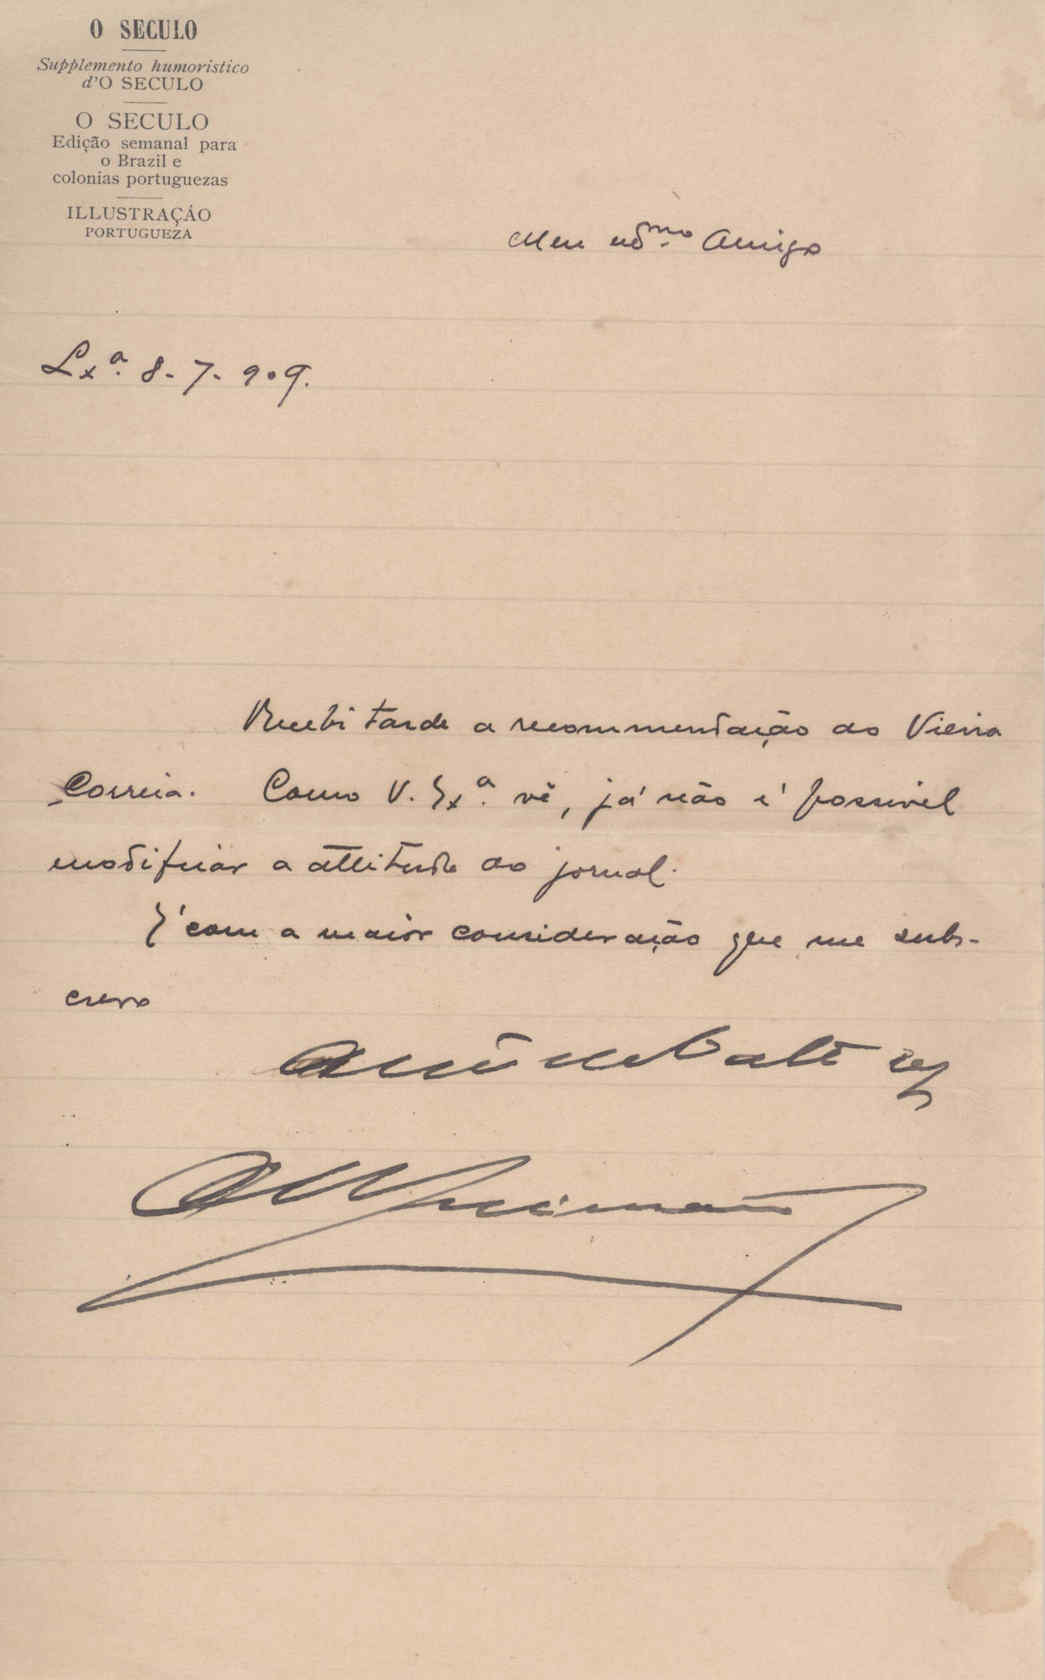 O SECULO
Supplemento humoristico
d'O SECULO
O SECULO
Edição semanal para
o Brazil e
colonias portuguezas
ILLUSTRAÇÃO
PORTUGUEZA
Meu Amigo
Lxª. 8-7-909.
Recebi tarde a recommendação do Vieira
Correia. Como V. Exª. vê, já não é possivel
modificar a attitude do jornal.
É com a maior consideração que me subs-
crevo